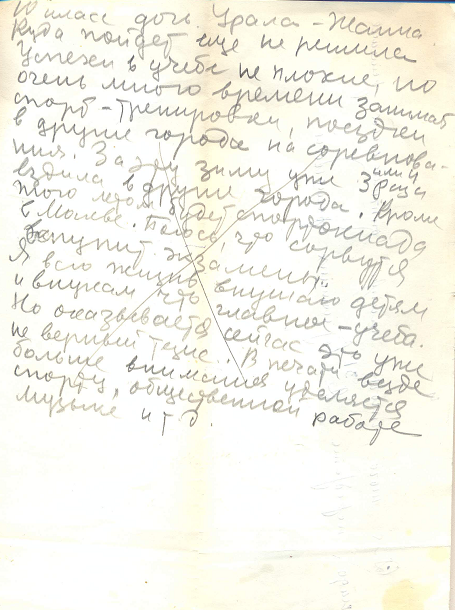 10 класс дочь Урала - Жанна
Куда пойдет еще не решила
Успехи в учебе не плохие, но
очень много времени занимает
спорт - тренировки, поездки
в другие города на соревнова-
ния. За эту зиму уже 3 раза
или 4
ездила в другие города. Кроме
того летом будет спартакиада
в Москве. Боюсь, что сорвутся
выпускн экзамены.
Я всю жизнь внушаю детям
и внукам что главное - учеба.
Но оказывается сейчас это уже
не верный тезис. В печати везде
больше внимания уделяется
спорту, общественной работе
музыке и т.д.